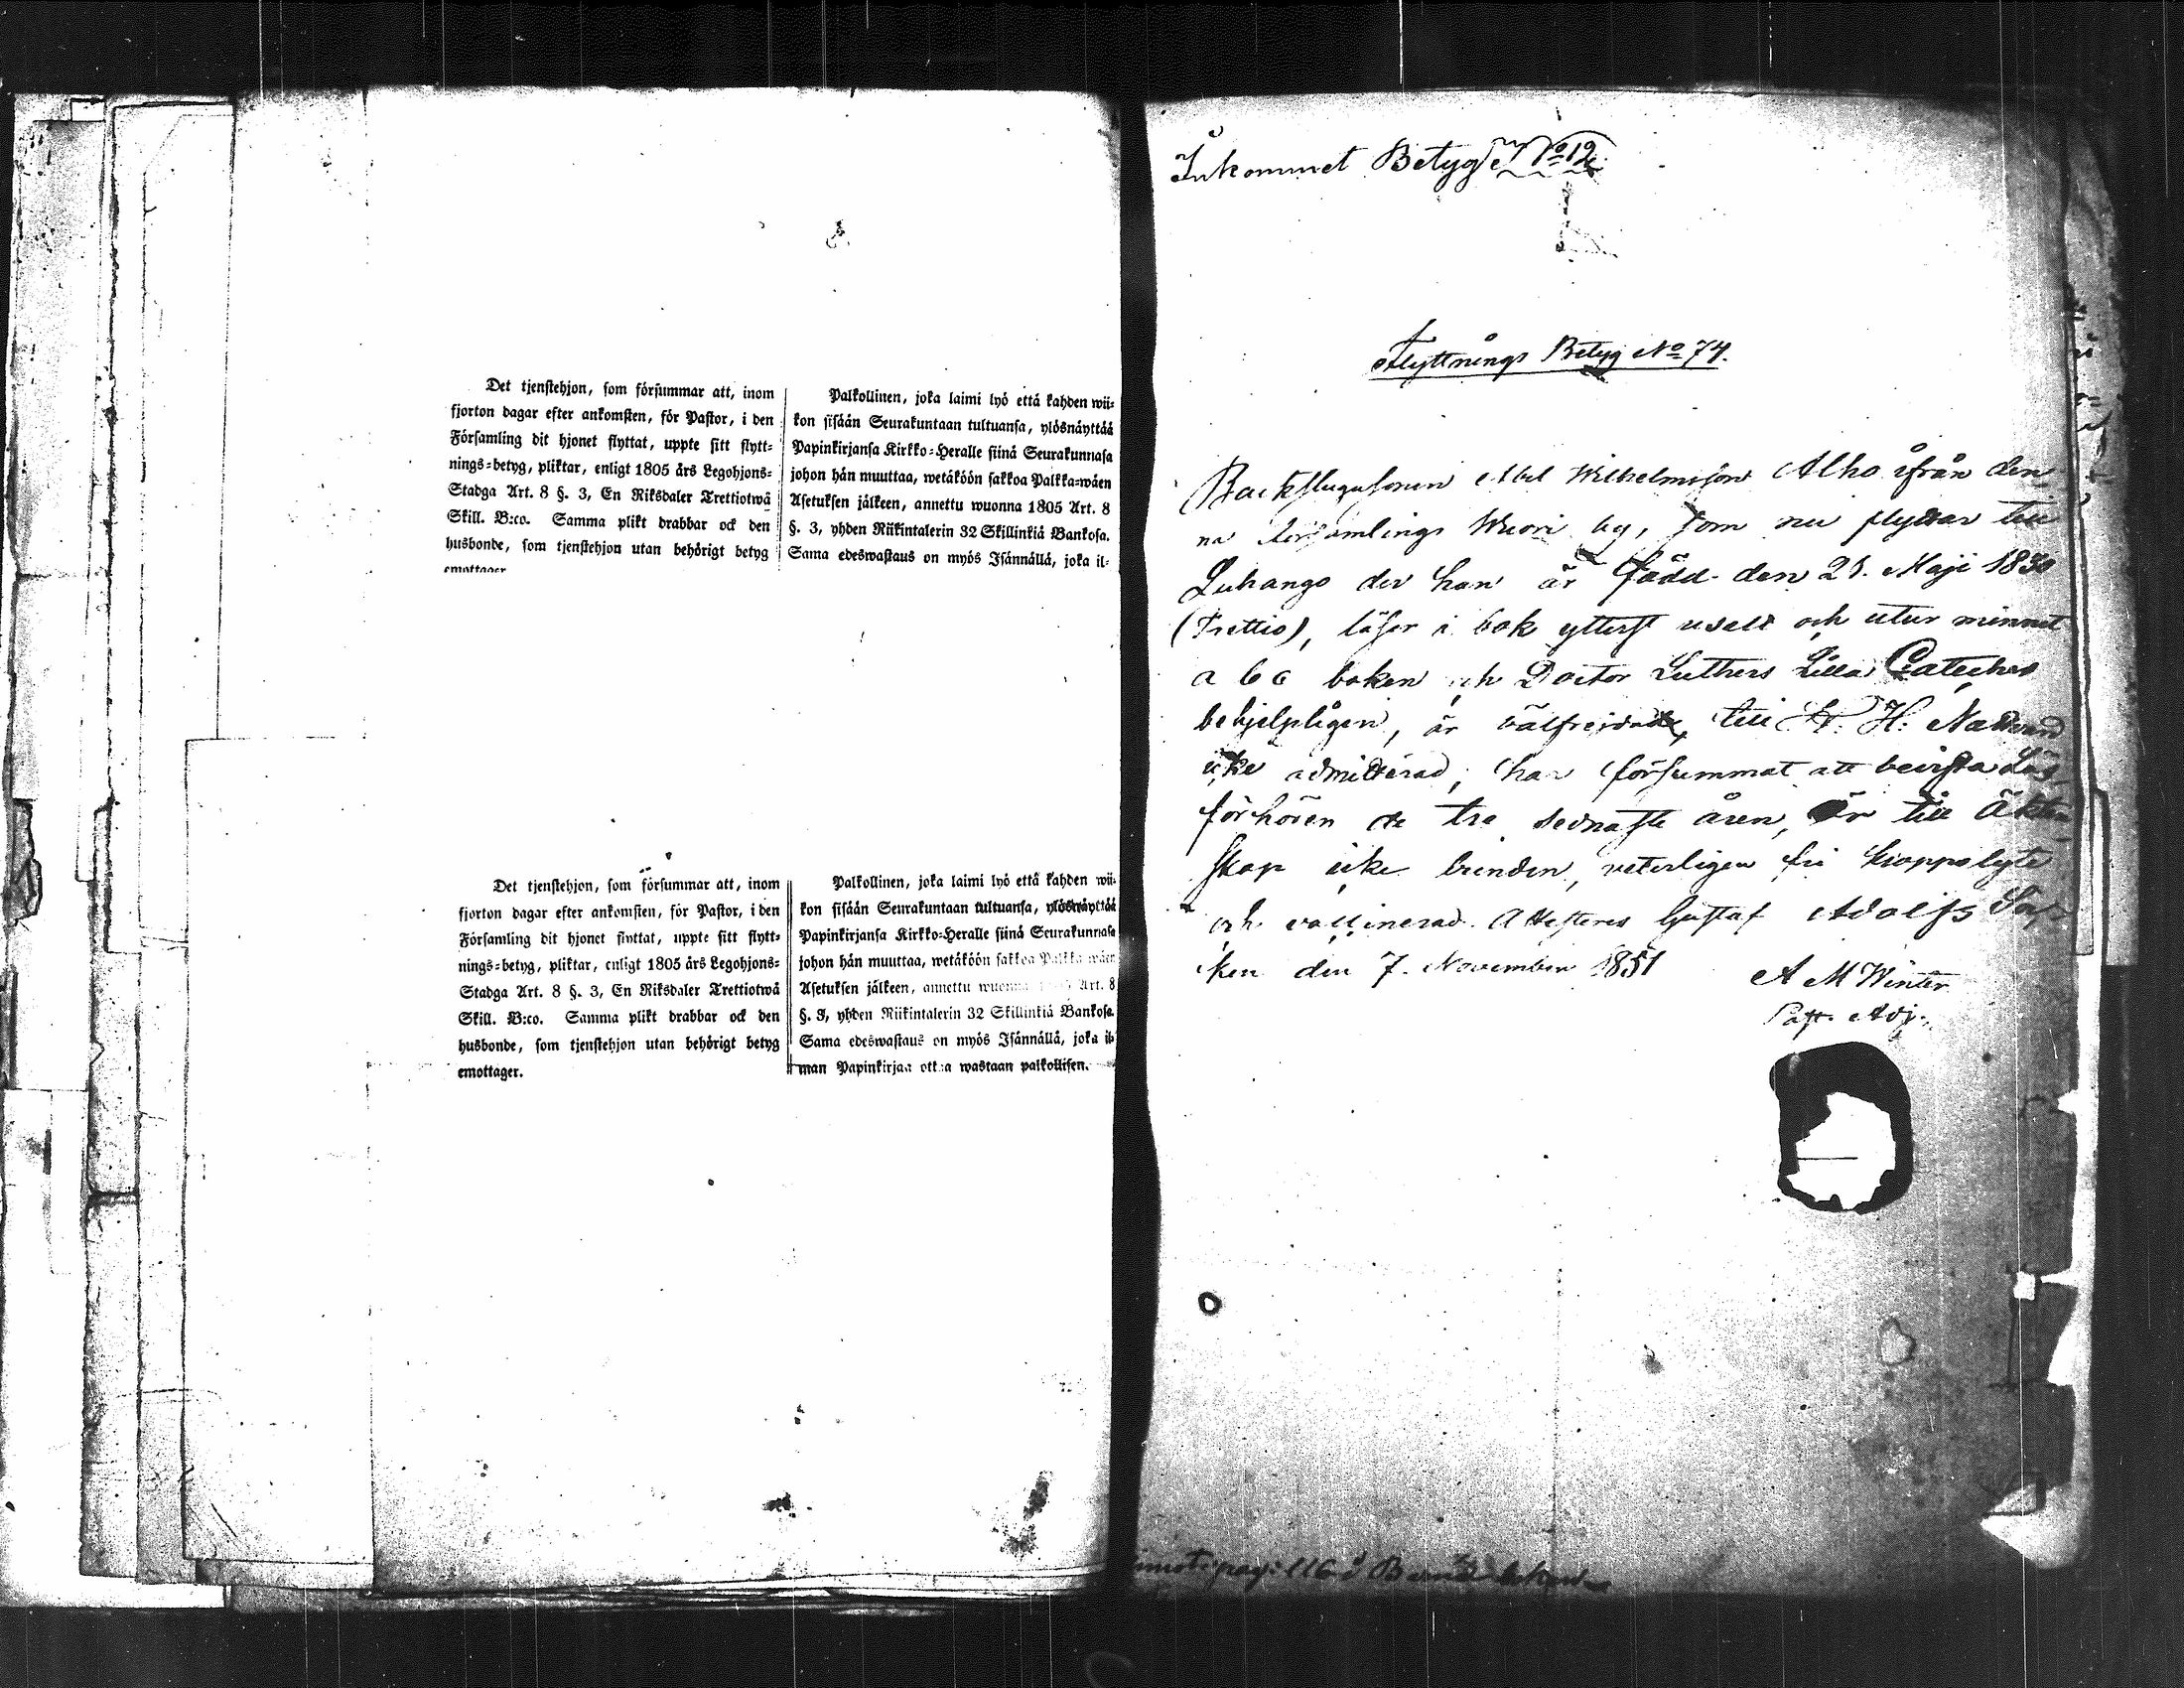 Det tjenstehjon, som försummar att, inom
fjorton dagar efter ankomsten, för Pastor, i den
Församling dit hjonet flyttat, uppte sitt flytt-
nings-betyg, pliktar, enligt 1805 års Legohjons-
Stadga Art. 8 §. 3, En Riksdaler Trettiotwå
Skill. B:co. Samma plikt drabbar ock den
husbonde, som tjenstehjon utan behörigt betyg
emottager
Palkollinen, joka laimi lyö että kahden wii-
kon sisään Seurakuntaan tultuansa, ylösnäyttää
Papinkirjansa Kirkko-Heralle siinä Seurakunnasa
johon hän muuttaa, wetäköön sakkoa Palkka-wäen
Asetuksen jälkeen, annettu wuonna 1805 Art. 8
§. 3, yhden Riikintalerin 32 Skillinkiä Bankosa.
Sama edeswastaus on myös Isännällä, joka il-
Det tjenstehjon, som försummar att, inom
fjorton dagar efter ankomsten, för Pastor, i den
Församling dit hjonet flyttat, uppte sitt flytt-
nings-betyg, pliktar, enligt 1805 års Legohjons-
Stadga Art. 8 §. 3, En Riksdaler Trettiotwå
Skill. B:co. Samma plikt drabbar ock den
husbonde, som tjenstehjon utan behörigt betyg
emottager.
Palkollinen, joka laimi lyö että kahden wii-
kon sisään Seurakuntaan tultuansa, ylösnäyttää
Papinkirjansa Kirkko-Heralle siinä Seurakunnasa
johon hän muuttaa, wetäköön sakkoa Palkka wäen
Asetuksen jälkeen, annettu wuonna 1805 Art. 8
§. 3, yhden Riikintalerin 32 Skillinkiä Bankosa.
Sama edeswastaus on myös Isännällä, joka il-
man Papinkirjaa ottaa wastaan palkollisen.
Inkommet Betyg No 12
Flyttnings Betyg No 74.
Backstugusonen Abel Wilhelmsson Alho ifrån den-
na församlings Wuori by, som nu flyttar till
Luhango der han är född den 21. Maji 1830
(Trettio), läser i bok ytterst uselt och utur minnet
a b c boken och Doctor Luthers Lilla Cateches
behjelpligen, är välfrejdad, till H. H. Nattvard
icke admitterad, har försummat att bevista Läs-
förhören de tre sednaste åren, är till Äkten-
skap icke bunden, veterligen fri kroppslyte
och vaccinerad. Attesteras Gustaf Adolfs
den 7. November 1851
A M Winter
Past. Adj.
pag: 116 i